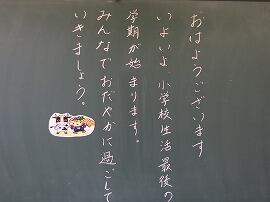 おはようございます
いよいよ、小学校生活最後の
学期が始まります。
みんなでおだやかに過ごして
いきましょう。